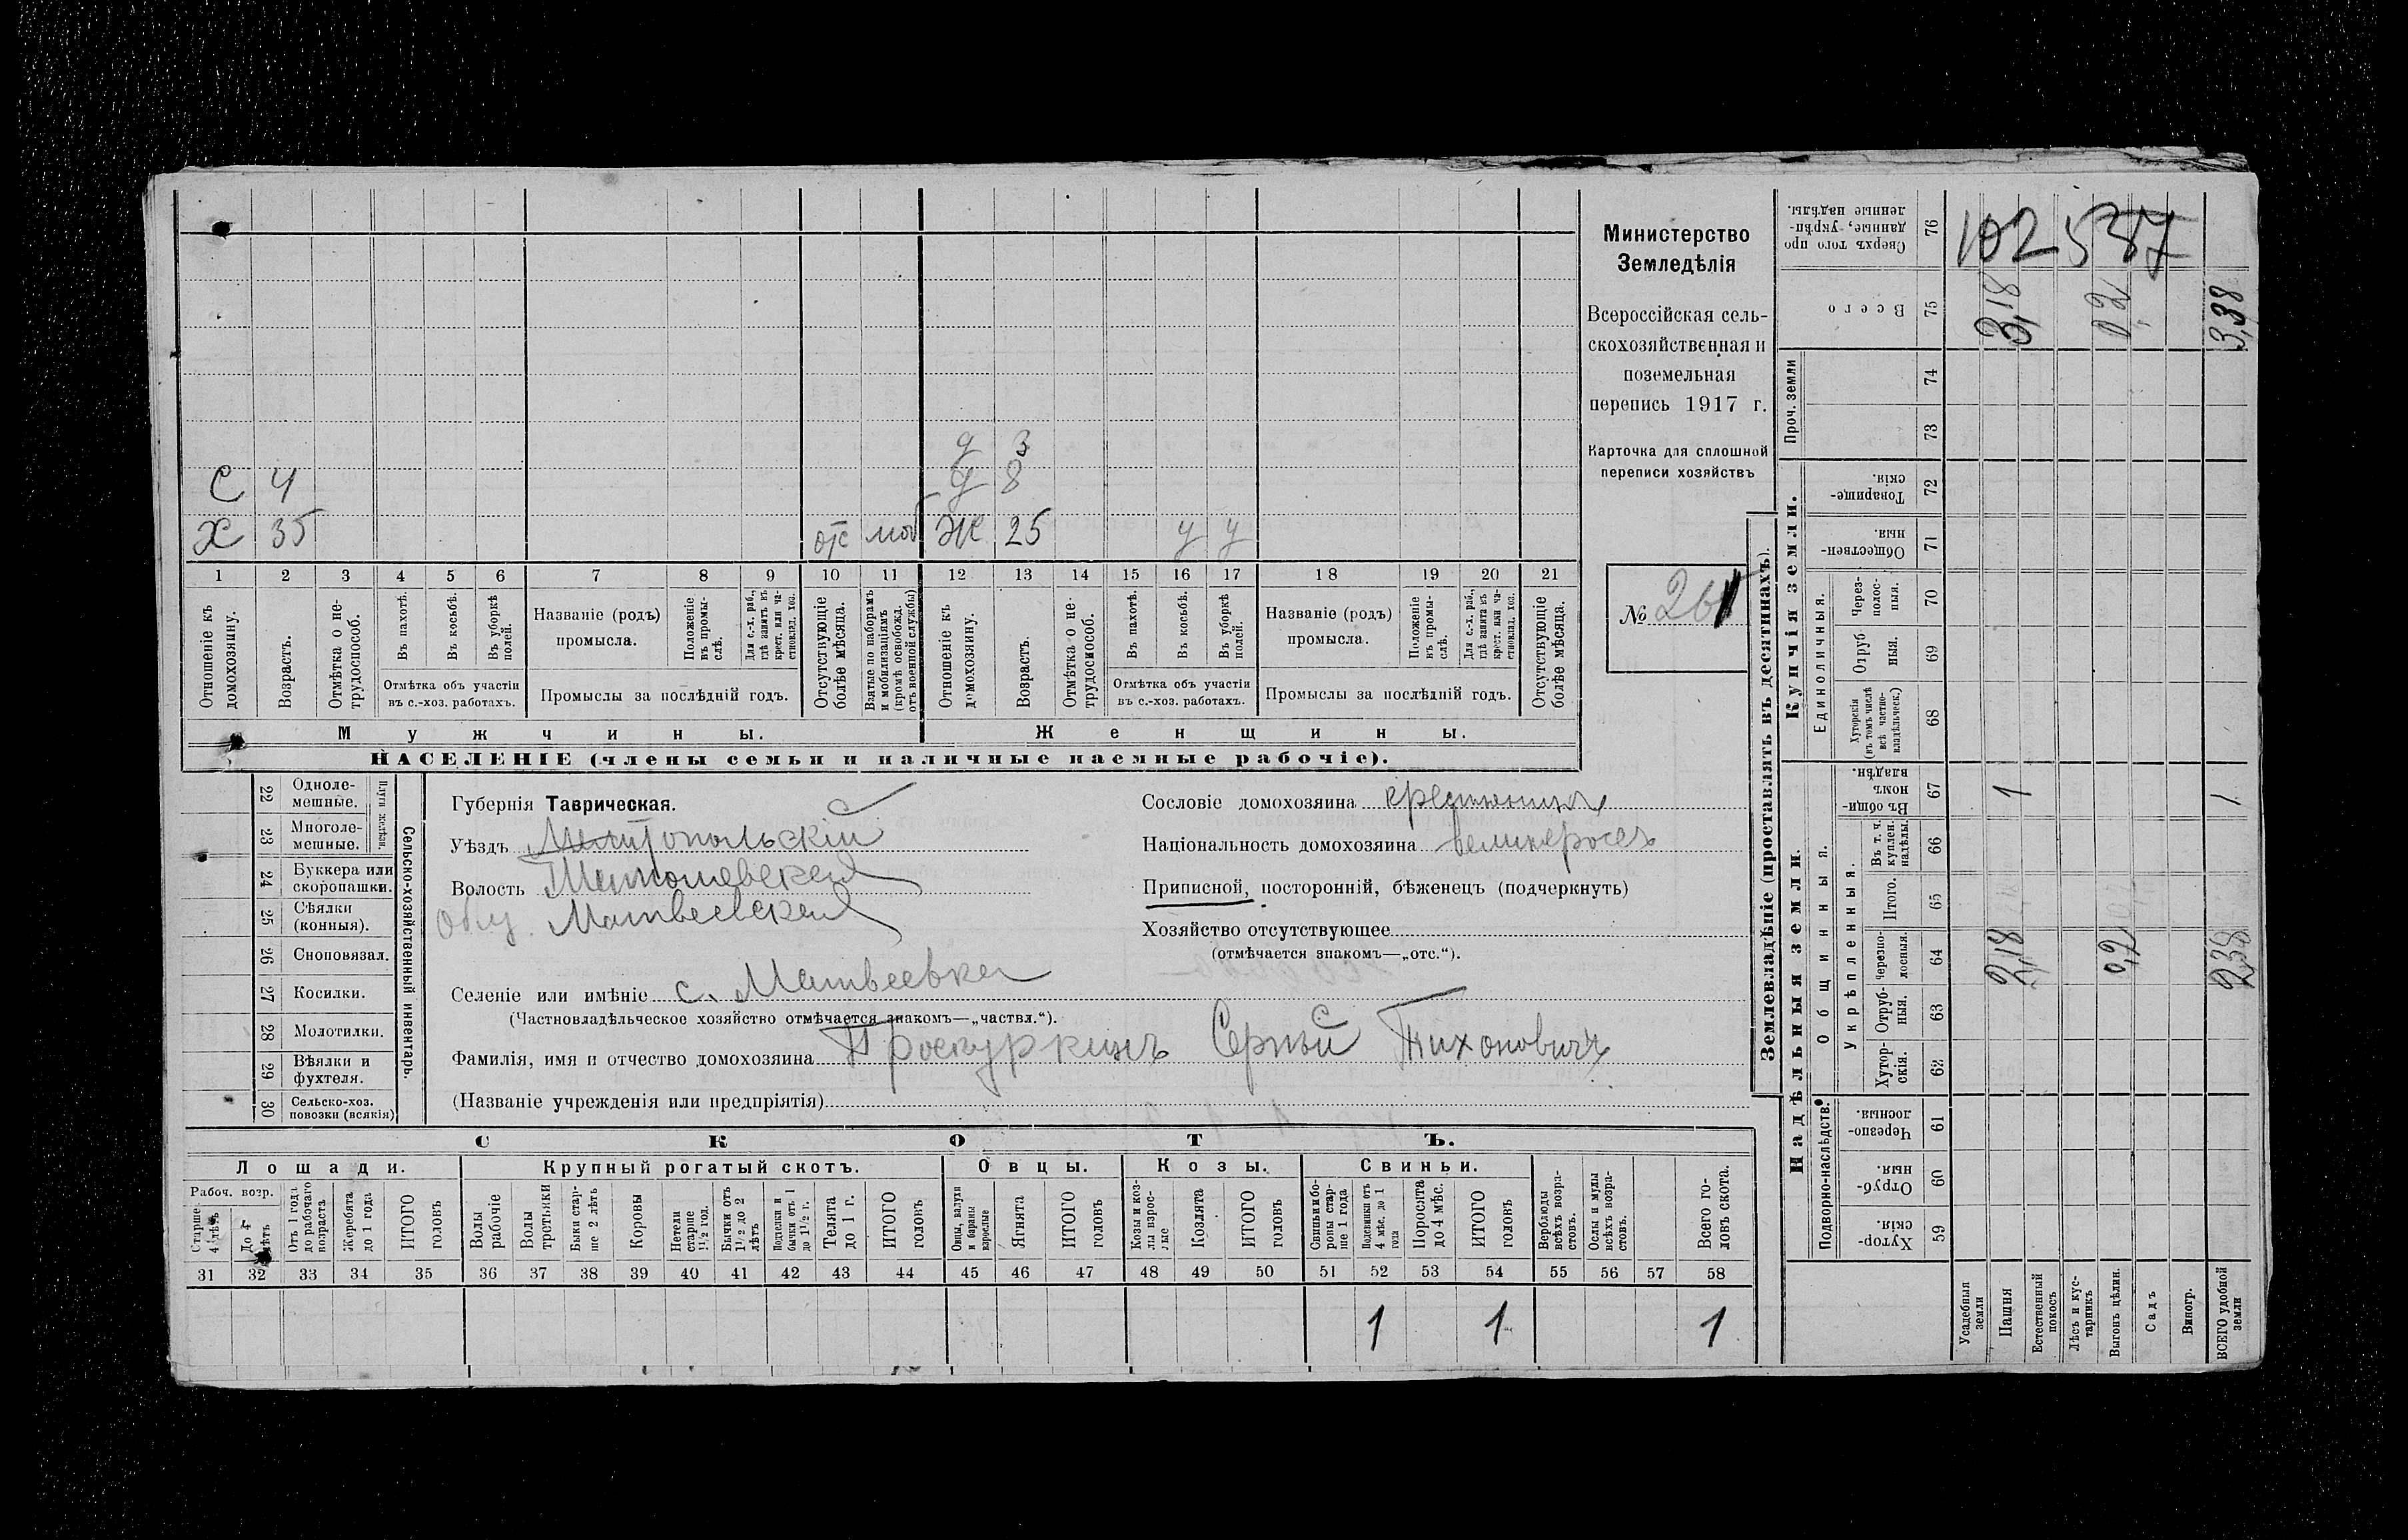 д 3
С 4 д 8
Х 35 отс моб Ж 25 у у
1 2 3 4 5 6 7 8 9 10 11 12 13 14 15 16 17 18 19 20 21
Отношеніе къ домохозяину.
Возрастъ.
Отмѣтка о нетрудоспособ.
Въ пахотѣ.
Въ косьбѣ.
Въ уборкѣ полей.
Отмѣтка объ участіи
въ с.-хоз. работахъ.
Названіе (родъ)
промысла.
Положеніе въ промыслѣ.
Для с.-х. раб., гдѣ занятъ въ крест. или частновлад. хоз.
Промыслы за послѣдній годъ.
Отсутствующіе болѣе мѣсяца.
Взятые по наборамъ и мобилизаціямъ (кромѣ освобожд. отъ военной службы)
Отношеніе къ домохозяину.
Возрастъ.
Отмѣтка о нетрудоспособ.
Въ пахотѣ.
Въ косьбѣ.
Въ уборкѣ полей.
Отмѣтка объ участіи
въ с.-хоз. работахъ.
Названіе (родъ)
промысла.
Положеніе въ промыслѣ.
Для с.-х. раб., гдѣ занята въ крест. или частновлад. хоз.
Промыслы за послѣдній годъ.
Отсутствующіе болѣе мѣсяца.
Мужчины. Женщины.
НАСЕЛЕНІЕ (члены семьи и наличные наемные рабочіе).
Министерство
Земледѣлія
Всероссійская сель-
скохозяйственная и
поземельная
перепись 1917 г.
Карточка для сплошной
переписи хозяйствъ
№
22 Одноле-
мешные.
23 Многоле-
мешные.
Плуги желѣзн.
24 Буккера или
скоропашки.
25 Сѣялки
(конныя).
26 Сноповязал.
27 Косилки.
28 Молотилки.
29 Вѣялки и
фухтеля.
30 Сельско-хоз.
повозки (всякія)
Сельско-хозяйственный инвентарь.
Губернія Таврическая.
Уѣздъ Мелитопольскій
Волость
Общ. Матвеевская
Селеніе или имѣніе с. Матвеевка
(Частновладѣльческое хозяйство отмѣчается знакомъ—„частвл.“).
Фамилія, имя и отчество домохозяина Проскуркинъ Сергѣй Тихоновичъ
(Названіе учрежденія или предпріятія)
Сословіе домохозяина крестьянинъ
Національность домохозяина великороссъ
Приписной, посторонній, бѣженецъ (подчеркнуть)
Хозяйство отсутствующее
(отмѣчается знакомъ—„отс.“).
СКОТЪ.
Лошади. Крупный рогатый скотъ. Овцы. Козы. Свиньи.
Рабоч. возр.
Старше 4 лѣтъ
До 4 лѣтъ
Отъ 1 года до рабочаго возраста
Жеребята до 1 года
ИТОГО головъ
Волы рабочіе
Волы третьяки
Быки старше 2 лѣтъ
Коровы
Нетели старше 1 1/2 год.
Бычки отъ 1 1/2 до 2 лѣтъ
Подтелки и бычки отъ 1 до 1 1/2 г.
Телята до 1 г.
ИТОГО головъ
Овцы, валухи и бараны взрослые
Ягнята
ИТОГО головъ
Козы и козлы взрослые
Козлята
ИТОГО головъ
Свиньи и бороны старше 1 года
Подсвинки отъ 4 мѣс. до 1 года
Поросята до 4 мѣс.
ИТОГО головъ
Верблюды всѣхъ возрастовъ.
Ослы и мулы всѣхъ возрастовъ.
Всего головъ скота.
31 32 33 34 35 36 37 38 39 40 41 42 43 44 45 46 47 48 49 50 51 52 53 54 55 56 57 58
1 1 1
Землевладѣніе (проставлять въ десятинахъ).
Надѣльныя земли. Купчія земли. Проч. земли
Подворно-наслѣдств.
Общинныя.
Укрѣпленныя.
Единоличныя.
Хуторскія 59
Отрубныя 60
Черезполосныя. 61
Хуторскія. 62
Отрубныя. 63
Черезполосныя. 64
Итого. 65
Въ т. ч. куплен. надѣлы. 66
Въ общинномъ владѣн. 67
Хуторскія (въ томъ числѣ всѣ частновладѣльческ.) 68
Отрубныя. 69
Черезполосныя. 70
Общественныя. 71
Товарищескія. 72
73
74
Всего 75
Сверхъ того проданные, укрѣпленные надѣлы. 76
Усадебныя земли
Пашня
Естественный покосъ
Лѣсъ и кустарникъ
Выгонъ цѣлин.
Садъ
Виногр.
ВСЕГО удобной земли
102 537
3,18 0,2 3,38
1 1
2,18 0,2 2,38